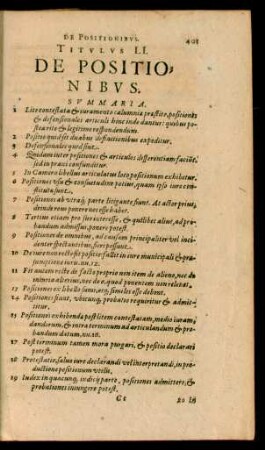 DE POSITIONIBVS.
TITVLVS LI.
DE POSITIO-
NIBVS.
SVMMARIA.
1 Lite contestata & iuramento calumniæ præstito, positiones
& defensionales articuli hinc inde dantur: quibus po-
stea rite & legitime respondendum.
2 Positio quid sit duabus definitionibus expeditur.
3 Defensionales quid sint.
4 Quidam inter positiones & articulos differentiam faciūt,
sed in praxi confunditur.
5 In Camera libellus articulatus loco positionum exhibetur.
6 Positiones vsu & consuetudine potius, quam ipso iure con-
stitutæ sunt.
7 Positiones ab vtraq; parte fieri possunt. At actor prius,
deinde reus ponere necesse habet.
8 Tertius etiam pro suo interesse, & quilibet alius, ad pro-
bandum admissus, ponere potest.
9 Positiones de omnibus, ad causam principaliter vel inci-
denter spectantibus, fieri possunt.
10 De iure non recte fit positio: fallit in iure municipali & pe-
regrino
11 Fit autem recte de facto proprio non item de alieno, nec de
vniuersali
13 Positiones ex libello sumi, atq; similes esse debent.
14 Positiones fiunt, vbicunq; probatio requiritur & admit-
titur.
15 Positiones exhibendæ post litem contestatam, modo iuram.
dandorum, & intra terminum ad articulandum & pro-
bandum datum.
17 Post terminum tamen mora purgari, & positio declarari
potest.
18 Protestatio, saluo iure declarandi vel interpretandi, in pro-
ductione positionum vtilis.
19 Iudex in quacunq; iudicij parte, positiones admittere, &
probationes iniungere potest.
20 In